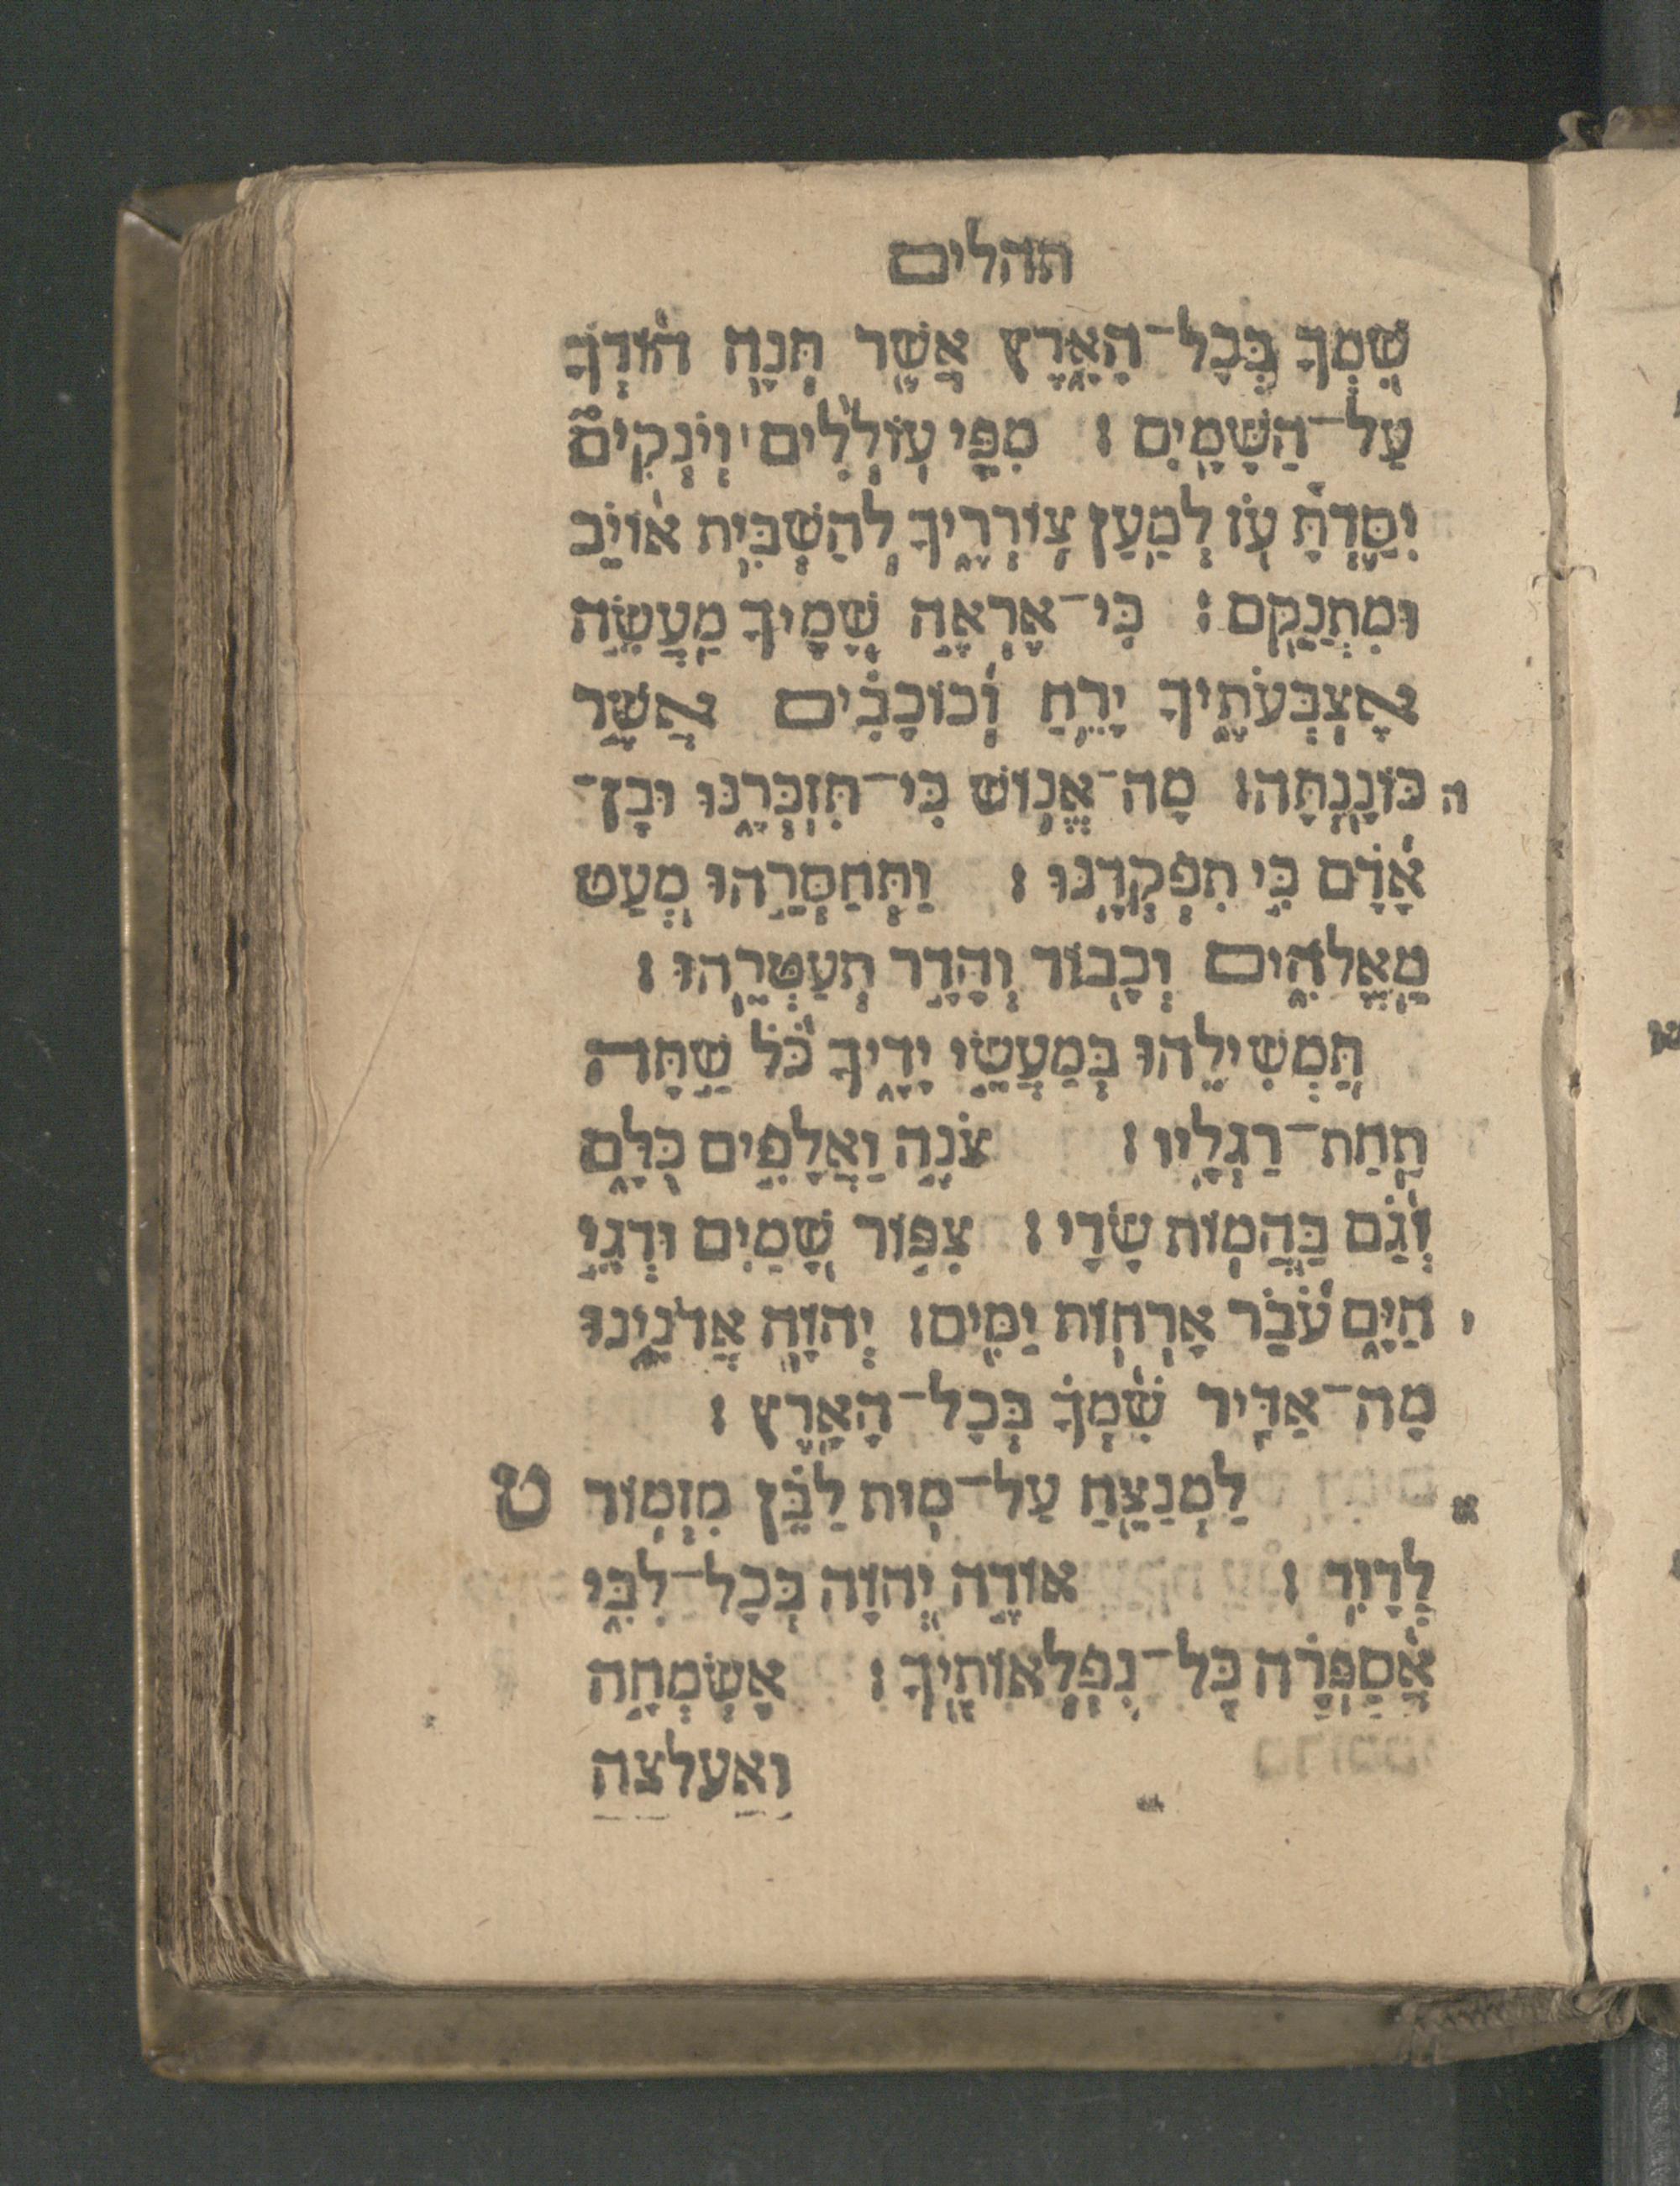 תהלים
שִׁמְךָ בְּכָל־הָאָרֶץ אֲשֶׁר תְּנָה הוֹדְךָ
עַל־הַשָּׁמָיִם : מִפִּי עוֹלְלִים וְיוֹנְקִים
יִסַּדְתָּ עֹז לְמַעַן צוֹרְרֶיךָ לְהַשְׁבִּית אוֹיֵב
וּמִתְנַקֵּם : כִּי־אֶרְאֶה שָׁמֶיךָ מַעֲשֵׂה
אֶצְבְּעֹתֶיךָ יָרֵחַ וְכוֹכָבִים אֲשֶׁר
ה כּוֹנָנְתָּה : מָה־אֱנוֹשׁ כִּי־תִזְכְּרֶנּוּ וּבֶן־
אָדָם כִּי תִפְקְדֶנּוּ : וַתְּחַסְּרֵהוּ מְעַט
מֵאֱלֹהִים וְכָבוֹד וְהָדָר תְּעַטְּרֵהוּ :
תַּמְשִׁילֵהוּ בְּמַעֲשֵׂי יָדֶיךָ כֹּל שַׁתָּה
תַחַת־רַגְלָיו : צֹנֶה וַאֲלָפִים כֻּלָּם
וְגַם בַּהֲמוֹת שָׂדָי : צִפּוֹר שָׁמַיִם וּדְגֵי
י הַיָּם עֹבֵר אָרְחוֹת יַמִּים : יְהוָה אֲדֹנֵינוּ
מָה־אַדִּיר שִׁמְךָ בְּכָל־הָאָרֶץ :
א לַמְנַצֵּחַ עַל־מוּת לַבֵּן מִזְמוֹר ט
לְדָוִד : אוֹדֶה יְהוָה בְּכָל־לִבִּי
אֲסַפְּרָה כָּל־נִפְלְאוֹתֶיךָ : אֶשְׂמְחָה
וְאֶעֶלְצָה